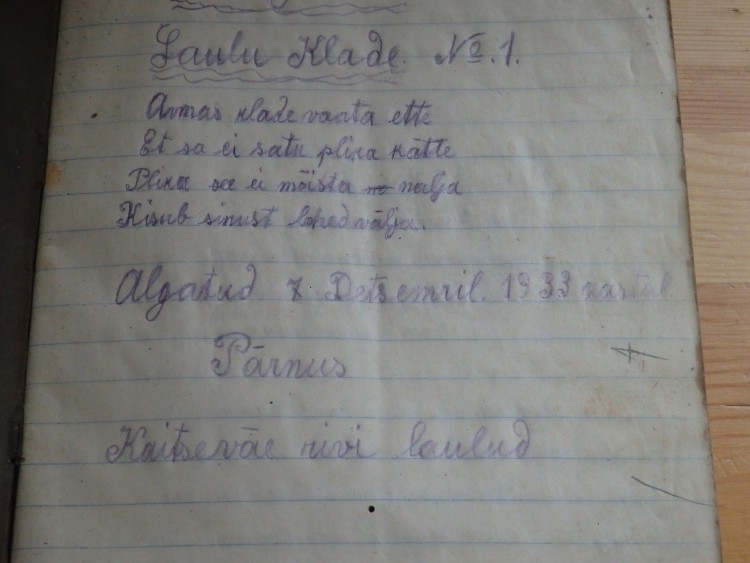 Laulu Klade. No. 1.
Armas klade vaata ette
Et sa ei satu plika kätte
Plika see ei mõista nalja
Kisub sinust lehed välja.
Algatud 7 Detsemril. 1933 aastal
Pärnus
Kaitseväe rivi laulud